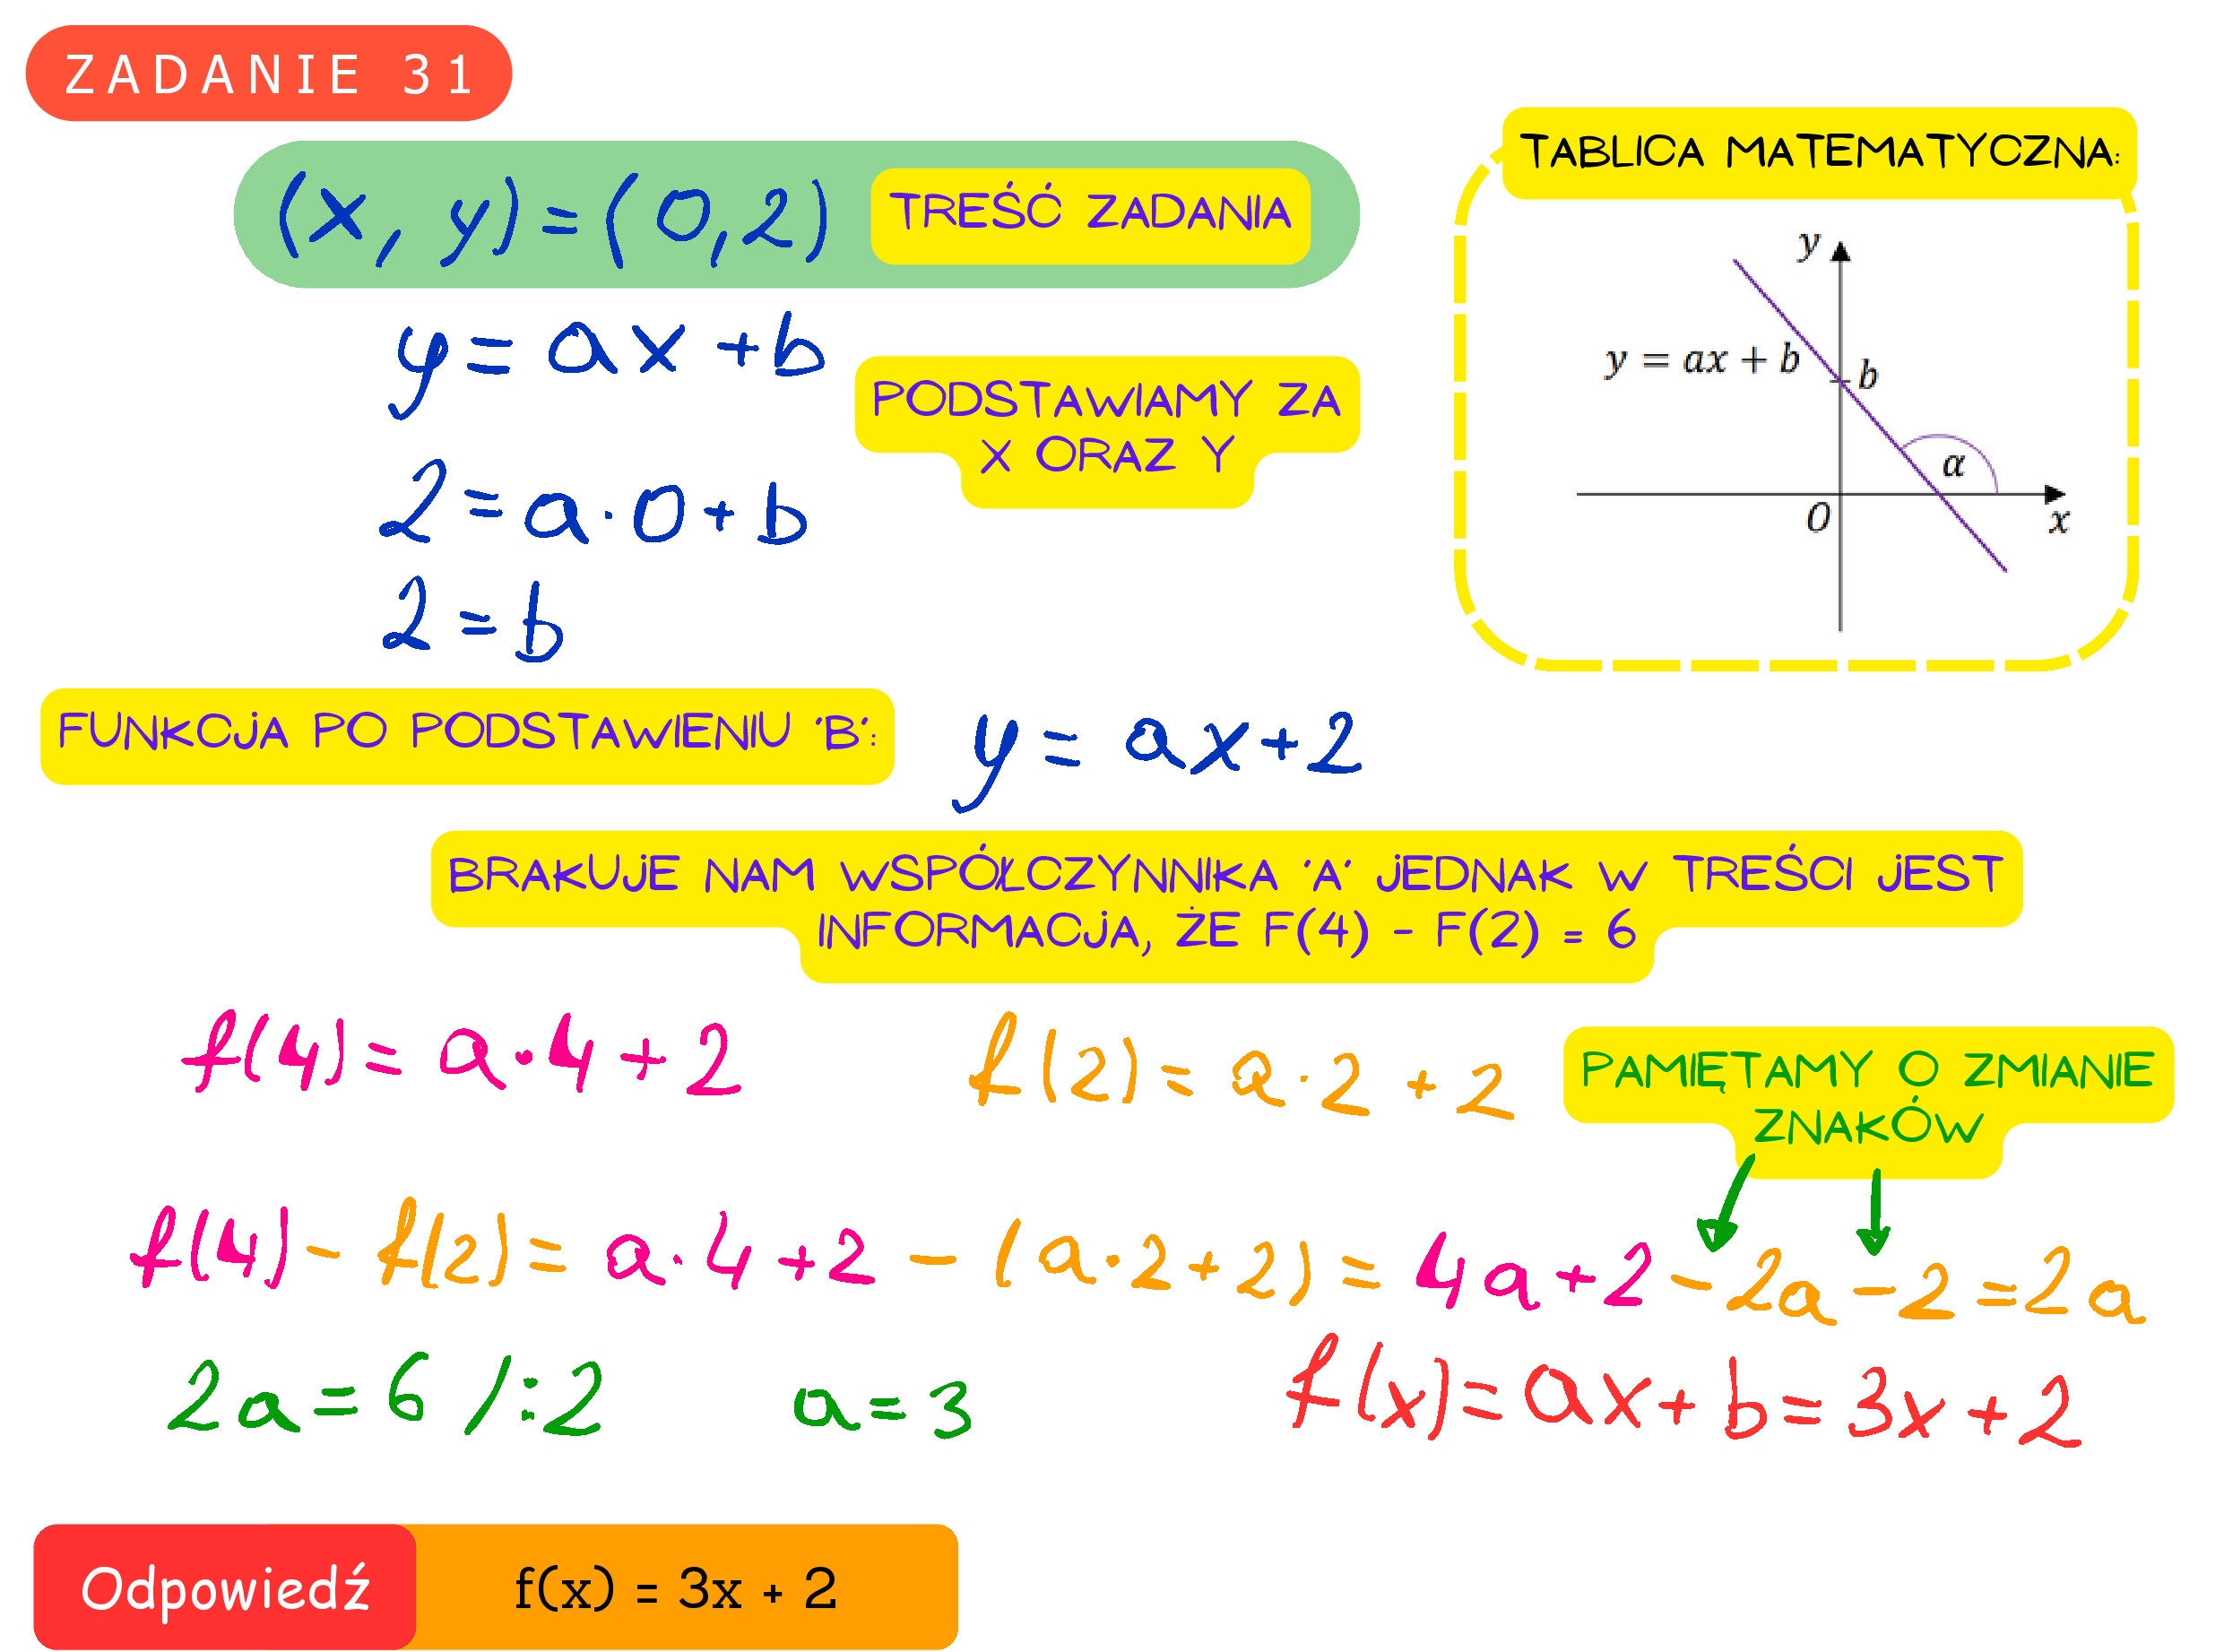 ZADANIE 31
(x, y) = (0,2) TREŚĆ ZADANIA
TABLICA MATEMATYCZNA:
y
y = ax + b
b
α
O
x
y = ax + b
PODSTAWIAMY ZA
X ORAZ Y
2 = a · 0 + b
2 = b
FUNKCJA PO PODSTAWIENIU 'B': y = ax + 2
BRAKUJE NAM WSPÓŁCZYNNIKA 'A' JEDNAK W TREŚCI JEST
INFORMACJA, ŻE F(4) - F(2) = 6
f(4) = a · 4 + 2 f(2) = a · 2 + 2
PAMIĘTAMY O ZMIANIE
ZNAKÓW
f(4) - f(2) = a · 4 + 2 - (a · 2 + 2) = 4a + 2 - 2a - 2 = 2a
2a = 6 /:2 a = 3 f(x) = ax + b = 3x + 2
Odpowiedź f(x) = 3x + 2